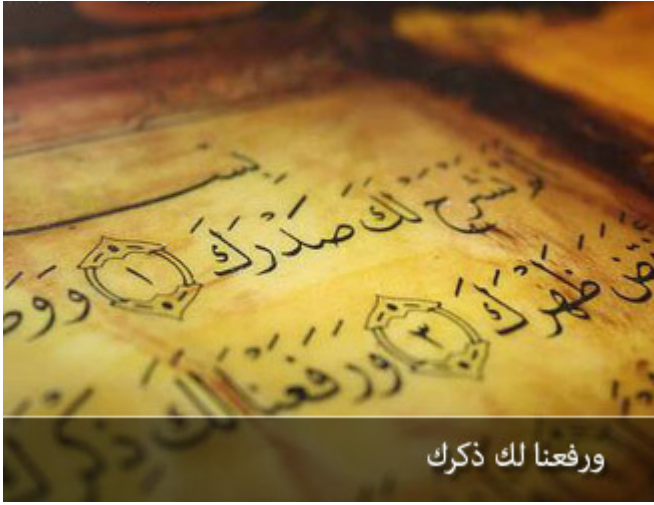 بِسْـ
نَشْرَحْ لَكَ صَدْرَكَ ١ وَوَضَـ
ـقَضَ ظَهْرَكَ ٣ وَرَفَعْنَا لَكَ ذِكْرَكَ
ورفعنا لك ذكرك